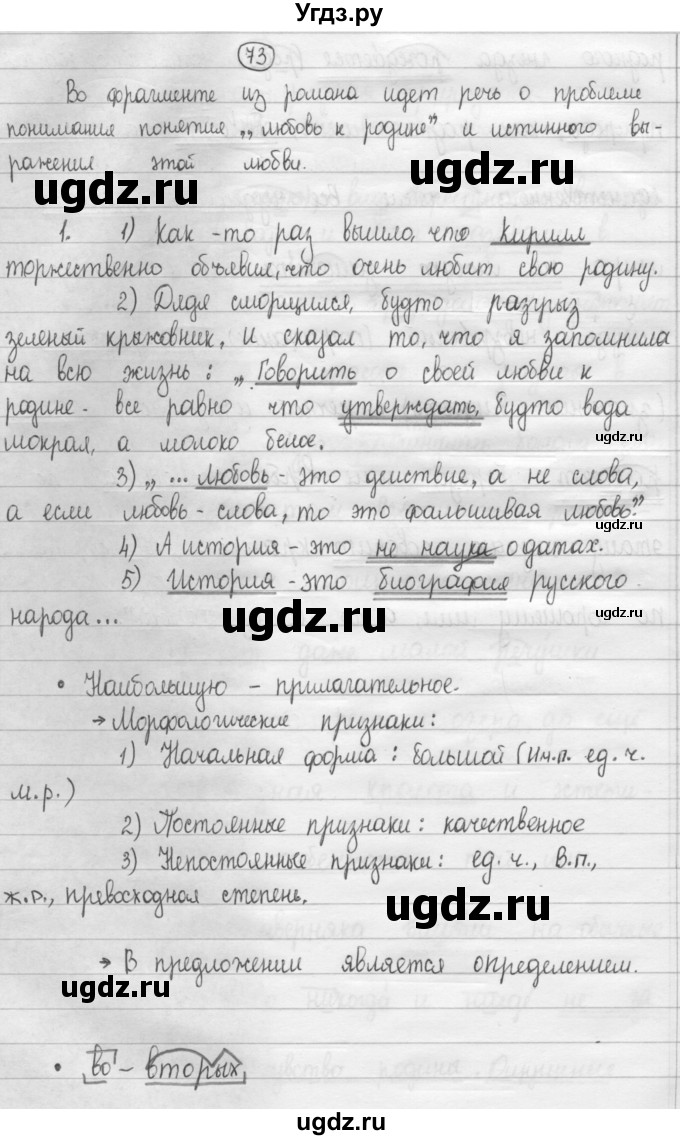 Угдз.ру
73
Во фрагменте из романа идет речь о проблеме
понимания понятия „любовь к родине" и истинного вы-
ражения этой любви.
ugdz.ru
ugdz.ru
1. 1) Как-то раз вышло, что Кирилл
торжественно объявил, что очень любит свою родину.
2) Дядя сморщился, будто разгрыз
зеленый крыжовник, И сказал то, что я запомнила
на всю жизнь: „Говорить о своей любви к
родине - все равно что утверждать, будто вода
мокрая, а молоко белое.
ugdz.ru
3) „... Любовь - это действие, а не слова,
а если любовь - слова, то это фальшивая любовь."
4) А история - это не наука о датах.
5) История - это биография русского
народа...
ugdz.ru
• Наибольшую - прилагательное.
→ Морфологические признаки:
1) Начальная форма: большой (Им.п. ед.ч.
м.р.)
2) Постоянные признаки: качественное
3) Непостоянные признаки: ед.ч., В.п.,
ж.р., превосходная степень.
ugdz.ru
→ В предложении является определением.
ugdz.ru
• во-вторых,
ugdz.ru